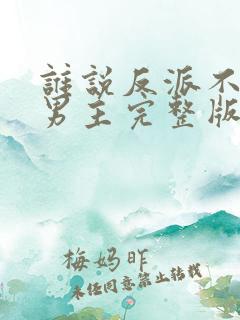 誰說反派不
男主完整版
梅妈昨
未经同意禁止转载